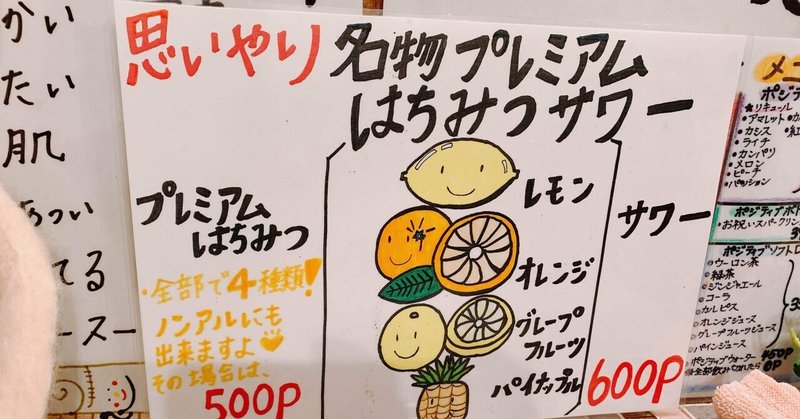 かい
たい
肌
てる
思いやり 名物プレミアム
はちみつサワー
プレミアム
はちみつ
レモン
オレンジ
グレープ
フルーツ
パイナップル
サワー
・全部で4種類!
ノンアルにも
出来ますよ
その場合は、
500P
600P
メニ
★リキュール
・アマレット
・カシス
・ライチ
・カンパリ
・メロン
・ピーチ
・パッション
・お祝いスパークリン
ポジティブソフト
ウーロン茶
緑茶
ジンジャエール
コーラ
カルピス
オレンジジュース
グレープフルーツジュース
パインジュース
ポジティブウォーター